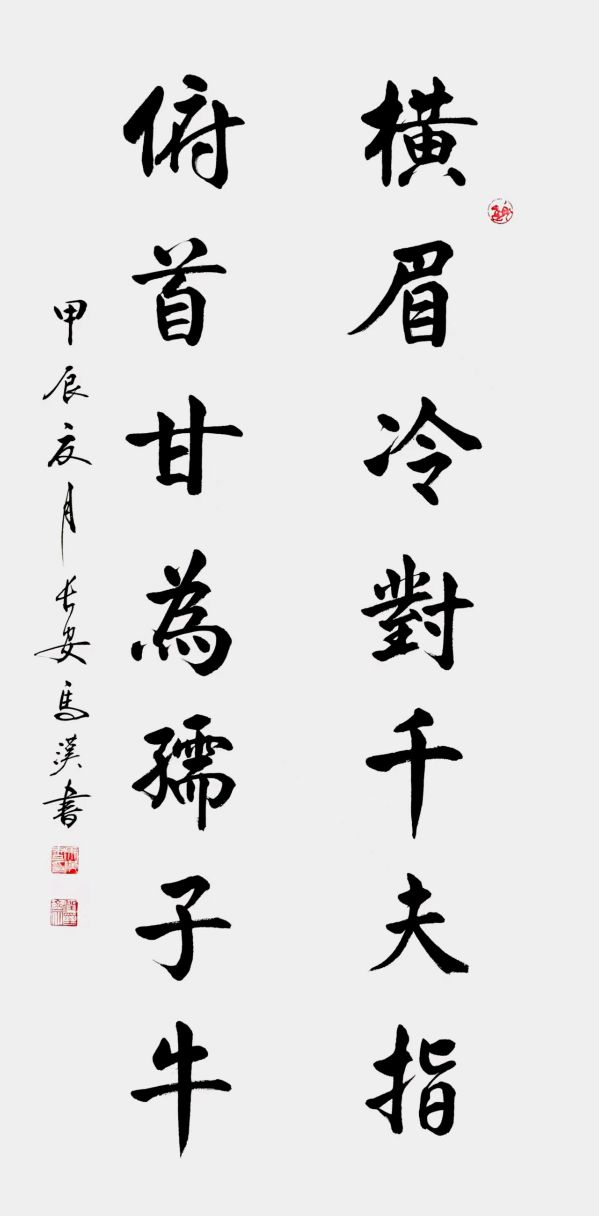 橫眉冷對千夫指
俯首甘為孺子牛
甲辰夏月長安馬漢書